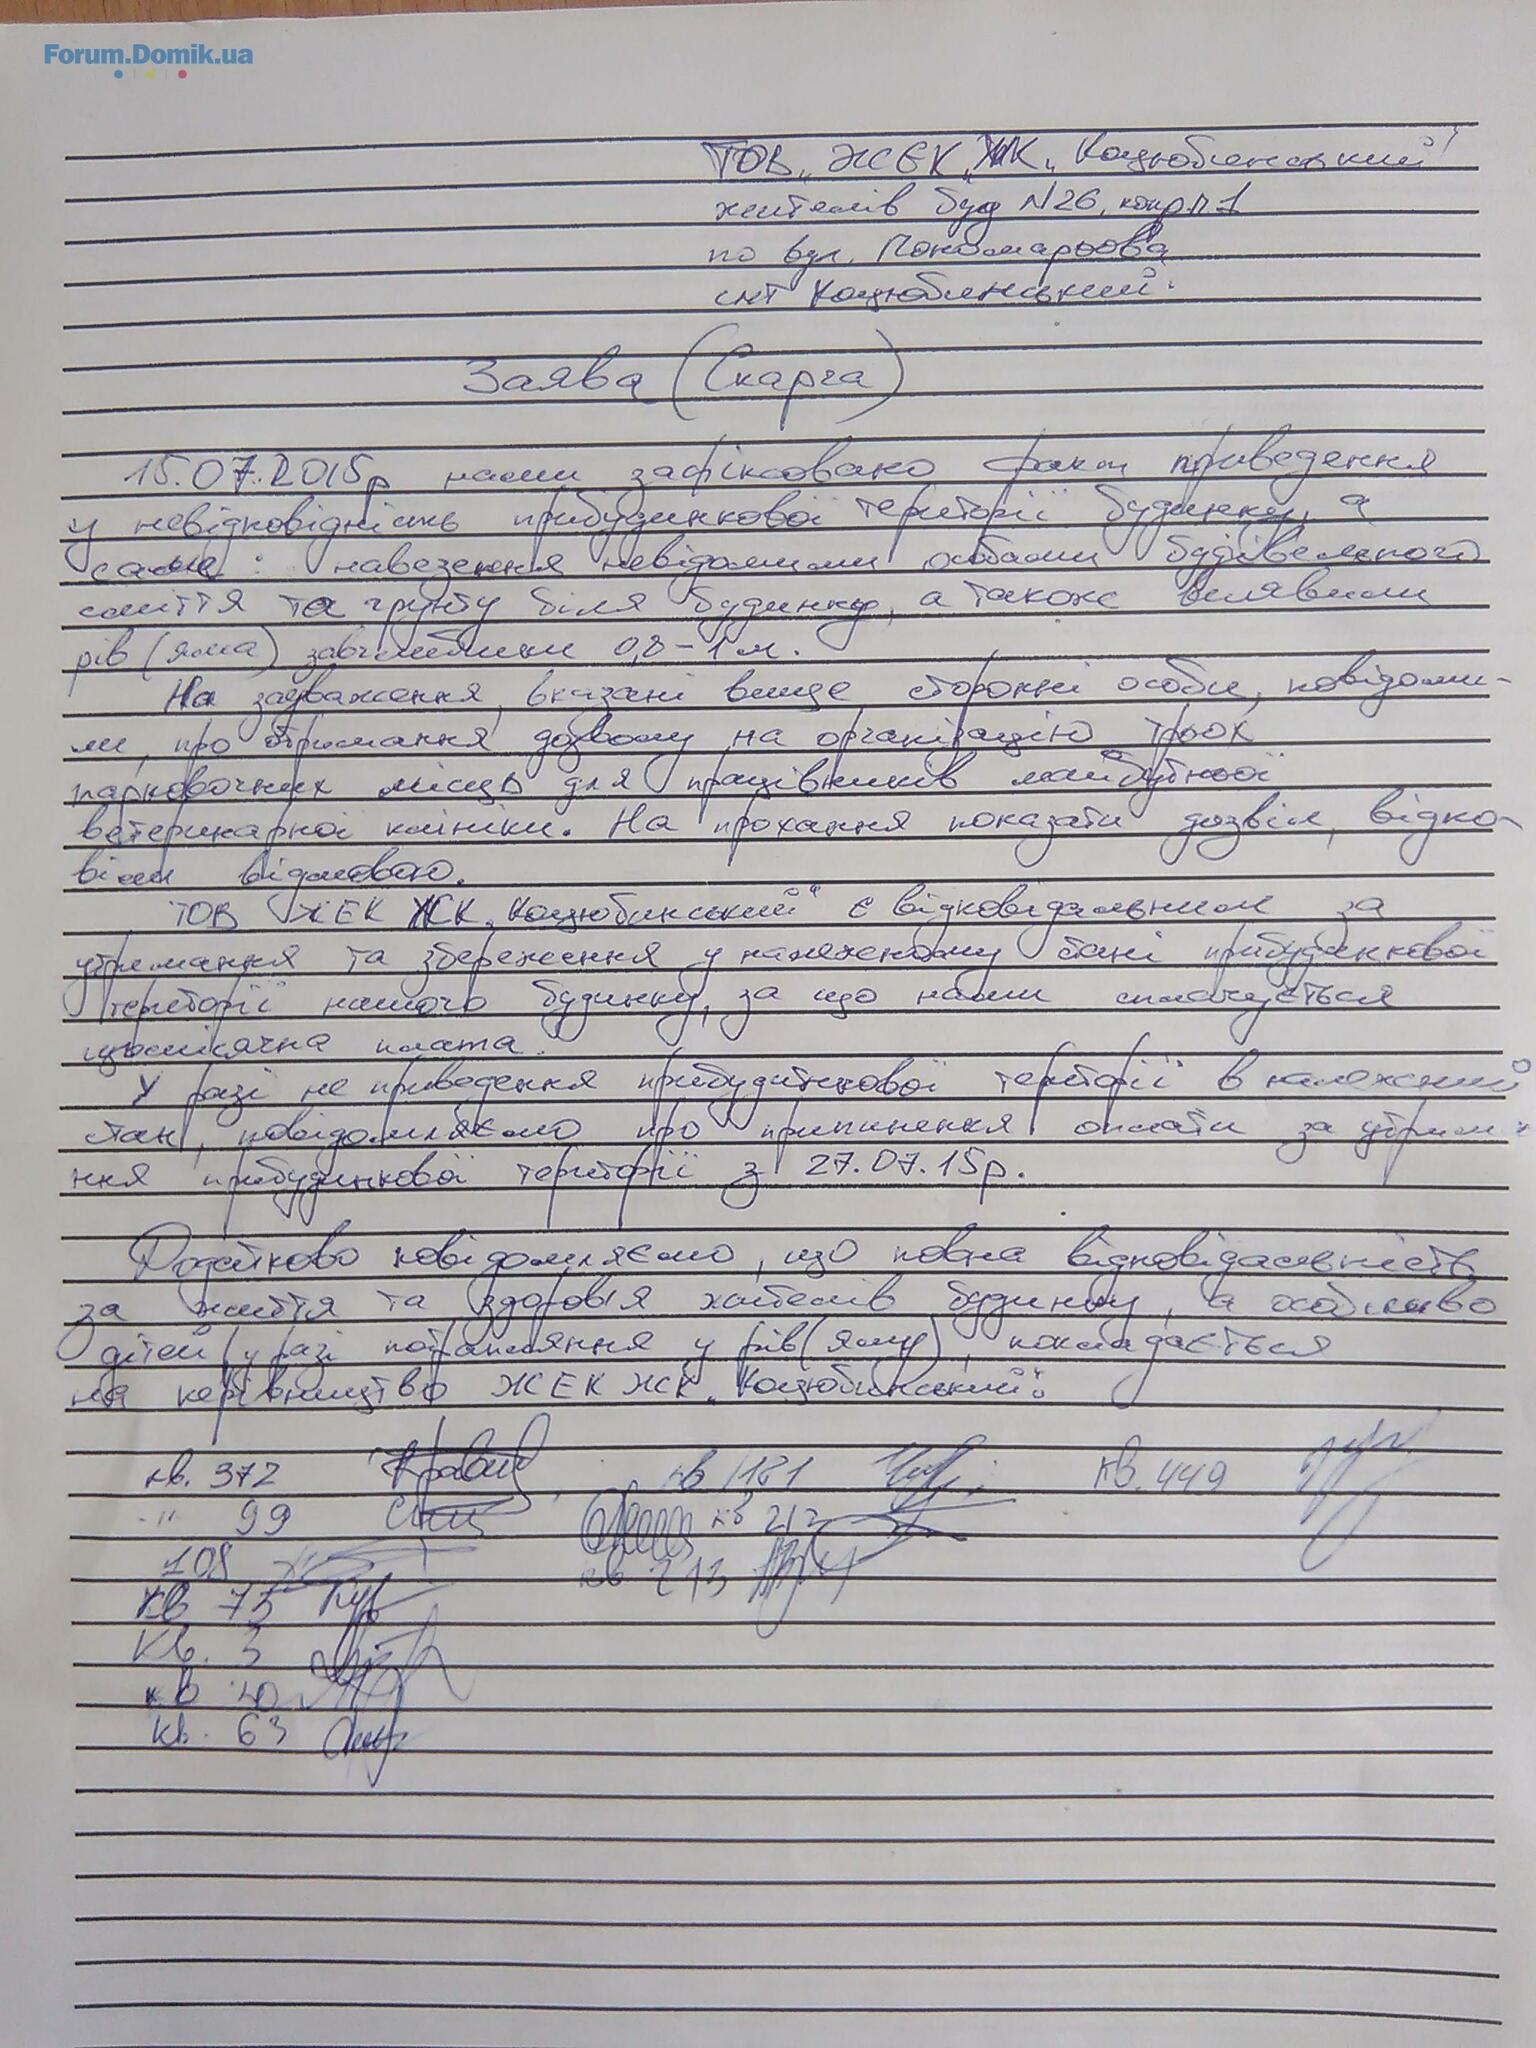 Forum.Domik.ua
ТОВ „ЖЕК „ЖК „Коцюбинський"
жителів буд N26, корп.1
по вул. Пономарьова
смт Коцюбинський.
Заява (Скарга)
15.07.2015р нами зафіксовано факт приведення
у невідповідність прибудинкової території будинку, а
саме: навезення невідомими особами будівельного
сміття та грунту біля будинку, а також виявили
рів (яма) завглибшки 0,8-1м.
На зауваження, вказані вище сторонні особи, повідоми-
ли, про отримання дозволу на організацію трьох
парковочних місць для працівників майбутньої
ветеринарної клініки. На прохання показати дозвіл, відпо-
віли відмовою.
ТОВ ЖЕК ЖК „Коцюбинський" є відповідальним за
утримання та збереження у належному стані прибудинкової
території нашого будинку, за що нами сплачується
щомісячна плата.
У разі не приведення прибудинкової території в належний
стан, повідомляємо про припинення оплати за утрим
ння прибудинкової території з 27.07.15р.
Додатково повідомляємо, що повна відповідальність
за життя та здоров'я жителів будинку, а особливо
дітей у разі потрапляння у рів (яму), покладається
на керівництво ЖЕК ЖК „Коцюбинський".
кв. 372 кв 181 кв. 449
-"- 99 кв 212
108 кв 213
кв 73
кв. 3
кв 40
кв. 63